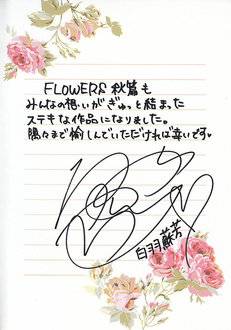 FLOWERS 秋篇も
みんなの想いがぎゅっと詰まった
ステキな作品になりました。
隅々まで愉しんでいただければ幸いです。
白羽蘇芳